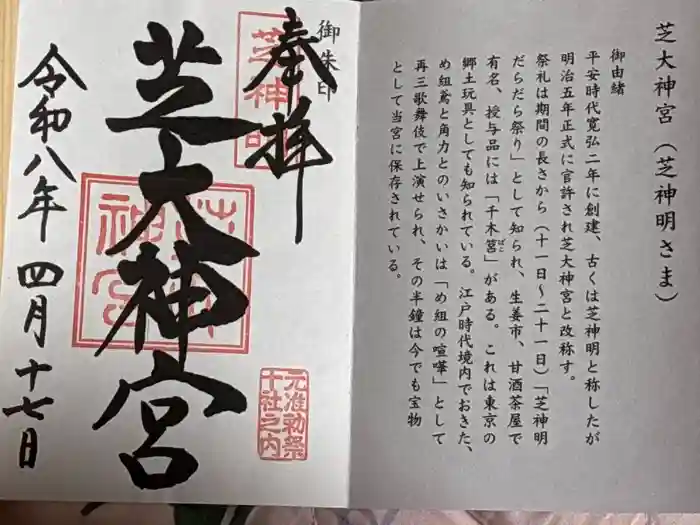 芝大神宮(芝神明さま)
御由緒
平安時代寛弘二年に創建、古くは芝神明と称したが
明治五年正式に官許され芝大神宮と改称す。
祭礼は期間の長さから(十一日~二十一日)「芝神明
だらだら祭り」として知られ、生姜市、甘酒茶屋で
有名、授与品には「千木筥ばこ」がある。これは東京の
郷土玩具としても知られている。江戸時代境内でおきた、
め組鳶と角力とのいさかいは「め組の喧嘩」として
再三歌舞伎で上演せられ、その半鐘は今でも宝物
として当宮に保存されている。
御朱印
奉拝
芝神明
芝大神宮
元准勅祭
十社之内
令和八年四月十七日